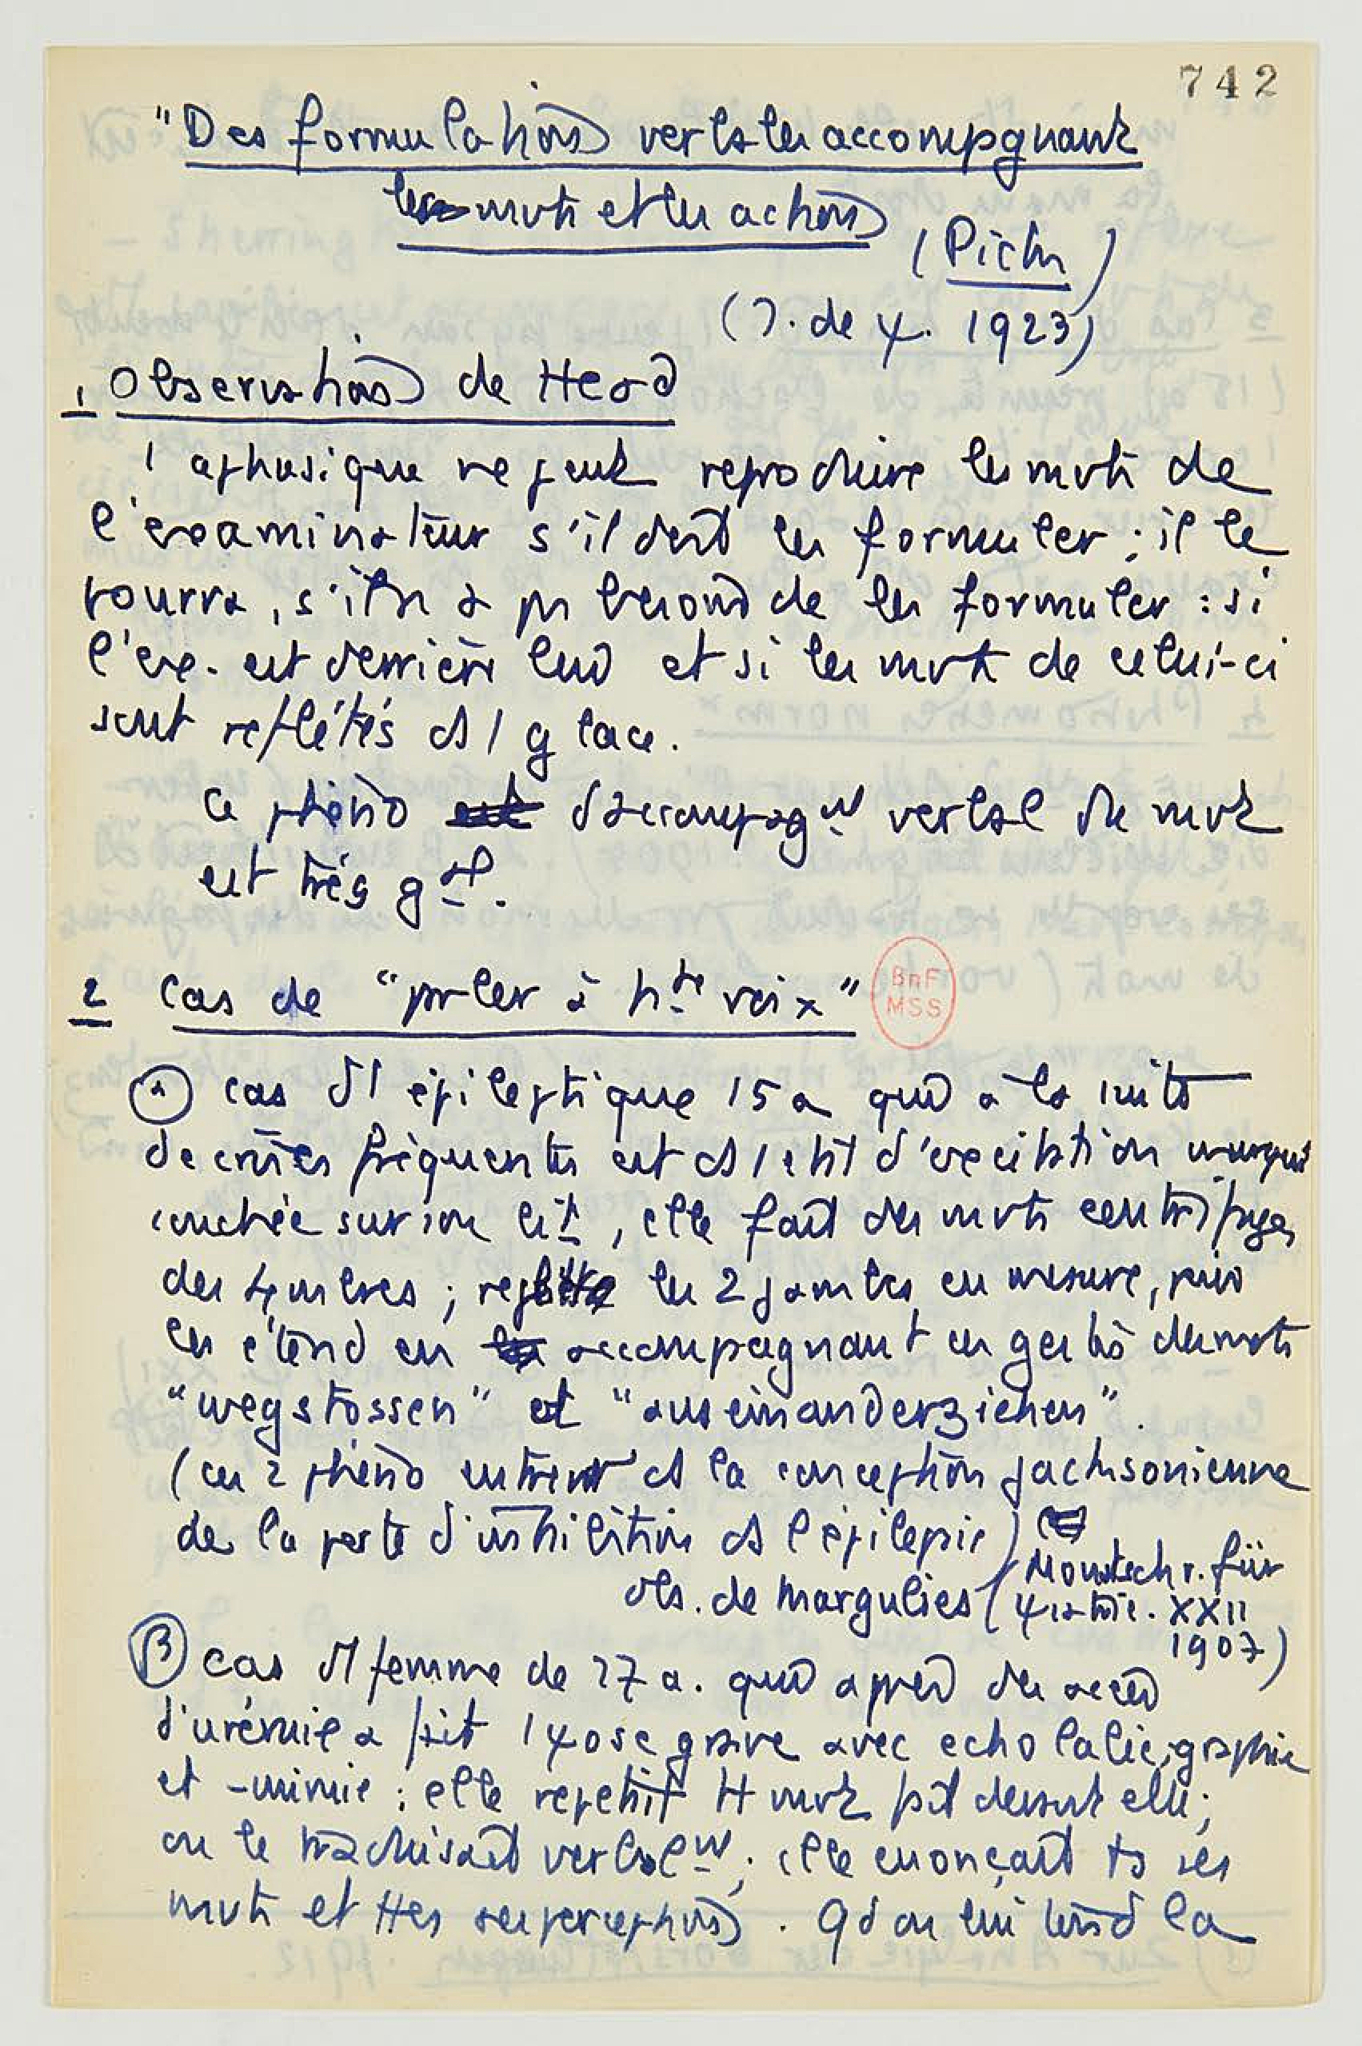 742
"Des formulations verbales accompgnant
les mvts et les actions
(Pick)
(J. de ψ. 1923)
1 Observations de Head
1 aphasique ne peut reproduire les mvts de
l'examinateur s'il doit les formuler ; il le
pourra, s'il n'a pas besoin de les formuler : si
l'ex. est derrière lui et si les mvts de celui-ci
sont reflétés ds 1 glace.
Ce phéno est d'accompagnt verbal du mvt
est très gal.
2 Cas de "parler à hte voix"
BnF
MSS
α cas d'1 épileptique 15 a qui à la suite
de crises fréquentes est ds 1 état d'excitation
couchée sur son lit, elle fait des mvts centrifuges
des 4 mbres ; les 2 jambes en mesure, puis
les étend en les accompagnant ces gestes des mots
"wegstossen" et "auseinanderziehen".
(ces 2 phéno entrent ds la conception jacksonienne
de la perte d'inhibition ds l'épilepsie)
obs. de Margulies (Monatschr. für
ψiatrie. XXII
1907)
β cas d'1 femme de 27 a. qui après des accès
d'urémie a fait 1 ψose grave avec echolalie, -graphie
et -mimie ; elle repétait tt mvt fait devant elle ;
ou le traduisait verbalemt ; elle enonçait ts ses
mvts et ttes ses perceptions. Qd on lui tend la